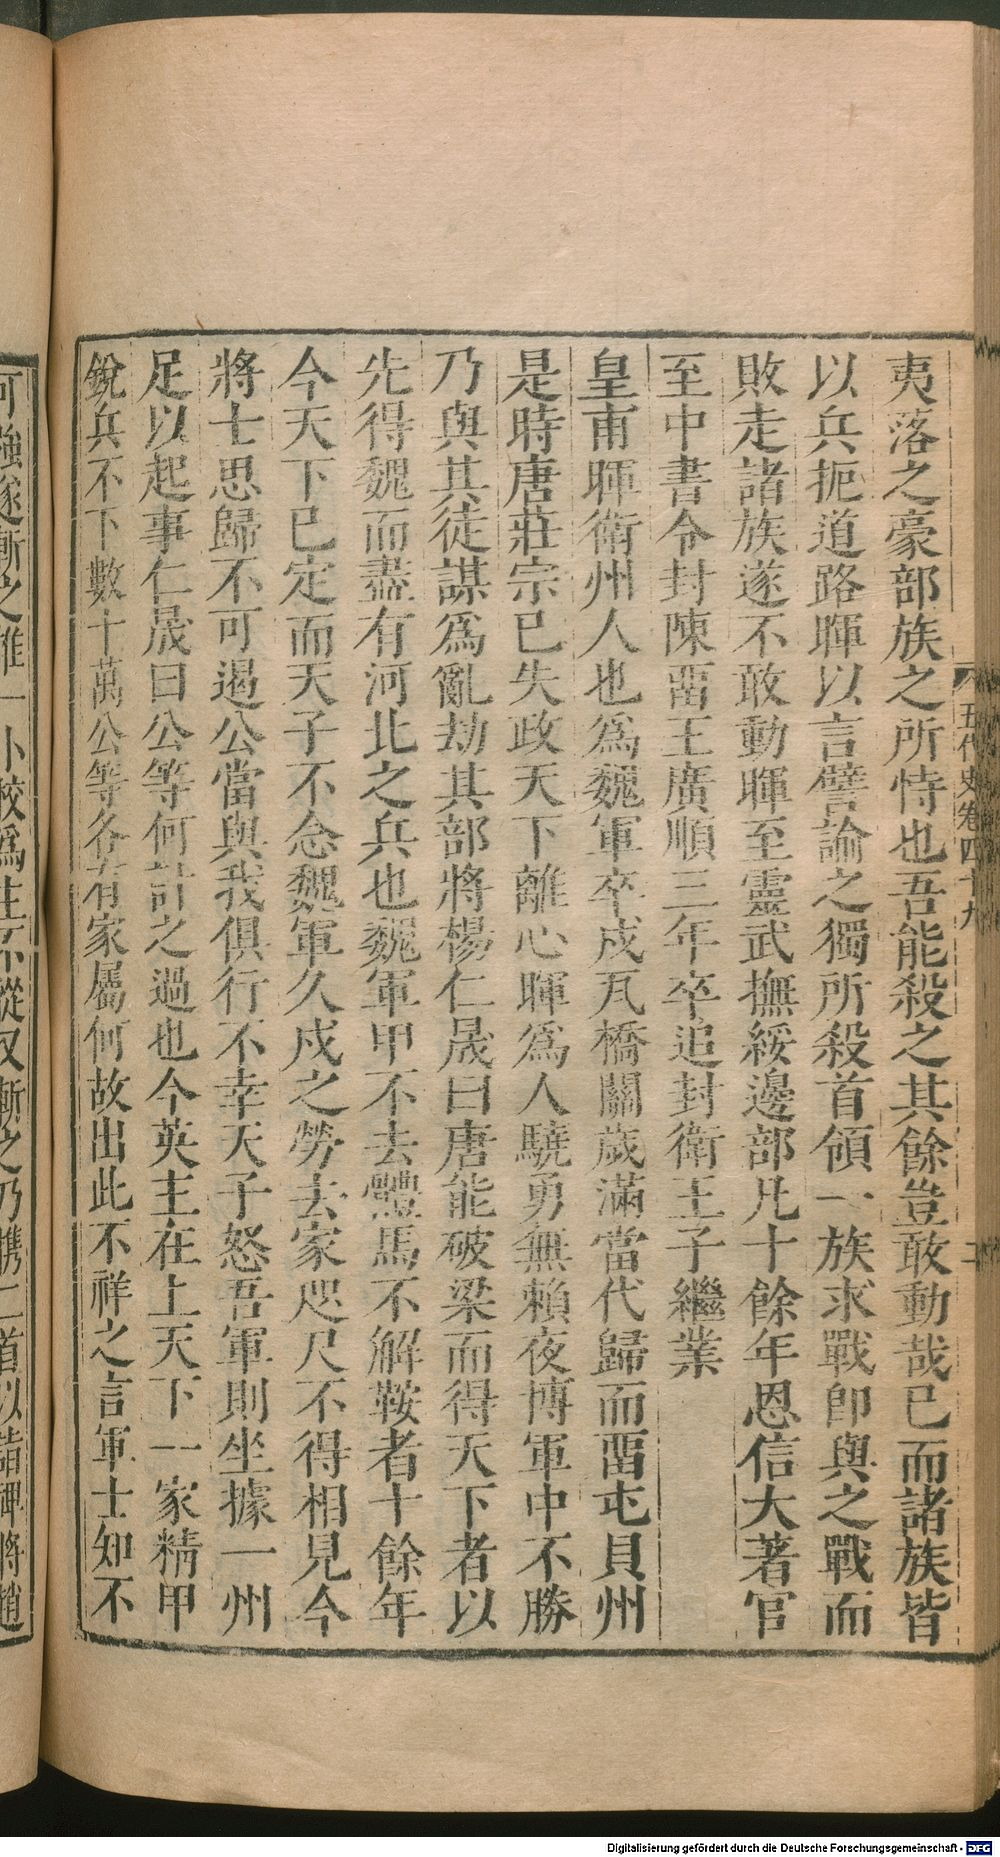 五代史卷四十九
二
夷落之豪部族之所恃也吾能殺之其餘豈敢動哉已而諸族皆
以兵扼道路暉以言譬諭之獨所殺首領一族求戰卽與之戰而
敗走諸族遂不敢動暉至靈武撫綏邊部凡十餘年恩信大著官
至中書令封陳畱王廣順三年卒追封衛王子繼業
皇甫暉衛州人也爲魏軍卒戍瓦橋關歲滿當代歸而畱屯貝州
是時唐莊宗已失政天下離心暉爲人驍勇無賴夜博軍中不勝
乃與其徒謀爲亂劫其部將楊仁晸曰唐能破梁而得天下者以
先得魏而盡有河北之兵也魏軍甲不去體馬不解鞍者十餘年
今天下已定而天子不念魏軍久戍之勞去家咫尺不得相見今
將士思歸不可遏公當與我俱行不幸天子怒吾軍則坐據一州
足以起事仁晸曰公等何計之過也今英主在上天下一家精甲
銳兵不下數十萬公等各有家屬何故出此不祥之言軍士知不
可強遂斬之推一小校爲主不從又斬之乃攜二首以詣裨將趙
Digitalisierung gefördert durch die Deutsche Forschungsgemeinschaft - DFG